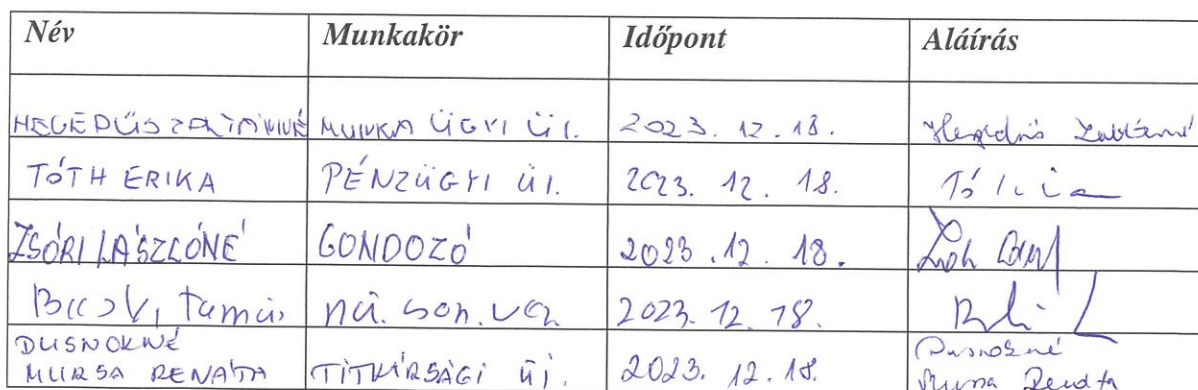 Név Munkakör Időpont Aláírás
HEGEDŰS ZOLTÁNNÉ MUNKAÜGYI ÜI. 2023. 12. 18. Hegedűs Zoltánné
TÓTH ERIKA PÉNZÜGYI ÜI. 2023. 12. 18.
ZSÓRI LÁSZLÓNÉ GONDOZÓ 2023. 12. 18.
Tamás 2023. 12. 18.
DUSNOKNÉ Dusnokné
MURSA RENÁTA TITKÁRSÁGI ÜI. 2023. 12. 18. Mursa Renáta